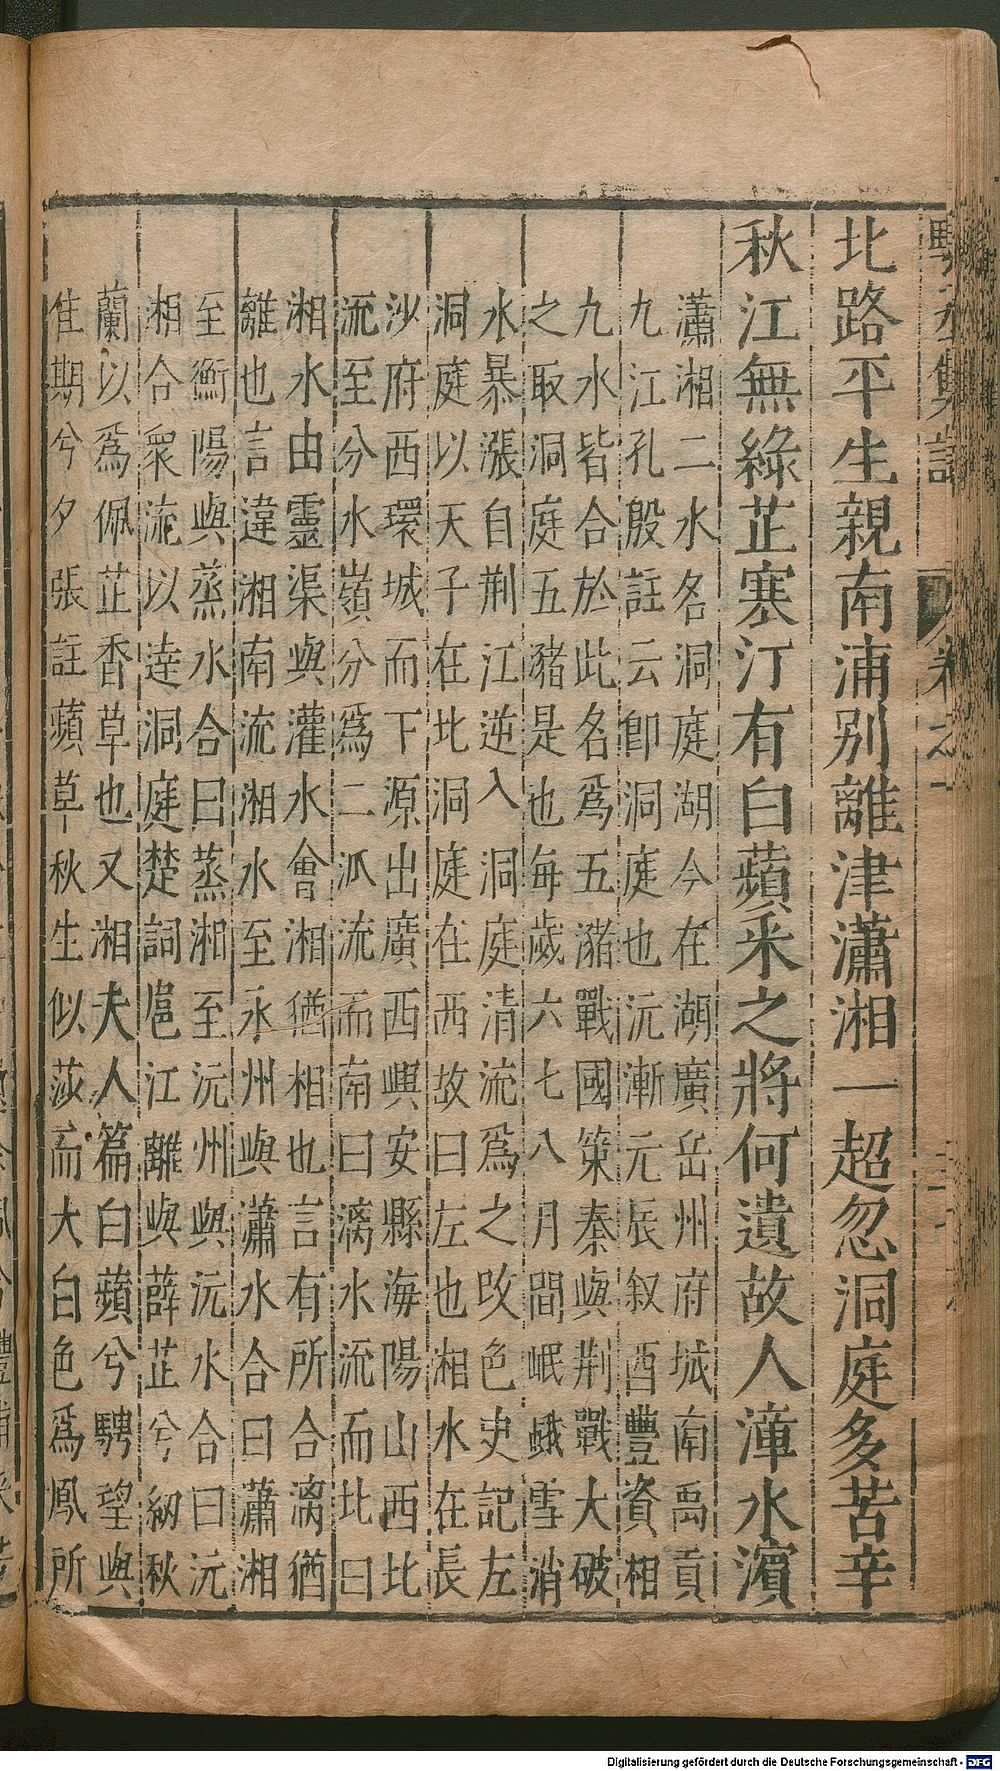 北路平生親南浦別離津瀟湘一超忽洞庭多苦辛
秋江無綠芷寒汀有白蘋采之將何遺故人漳水濱
瀟湘二水名洞庭湖今在湖廣岳州府城南禹貢
九江孔殷註云卽洞庭也沅漸元辰叙酉豐資相
九水皆合於此名爲五瀦戰國策秦與荆戰大破
之取洞庭五豬是也每歲六七八月間岷峨雪消
水暴漲自荆江逆入洞庭清流爲之改色史記左
洞庭以天子在北洞庭在西故曰左也湘水在長
沙府西環城而下源出廣西興安縣海陽山西北
流至分水嶺分爲二派流而南曰漓水流而北曰
湘水由靈渠與灌水會湘猶相也言有所合漓猶
離也言違湘南流湘水至永州與瀟水合曰瀟湘
至衡陽與蒸水合曰蒸湘至沅州與沅水合曰沅
湘合衆流以逹洞庭楚詞扈江離與薜芷兮紉秋
蘭以爲佩芷香草也又湘夫人篇白蘋兮騁望與
佳期兮夕張註蘋草秋生似莎而大白色爲鳳所
Digitalisierung gefördert durch die Deutsche Forschungsgemeinschaft - DFG